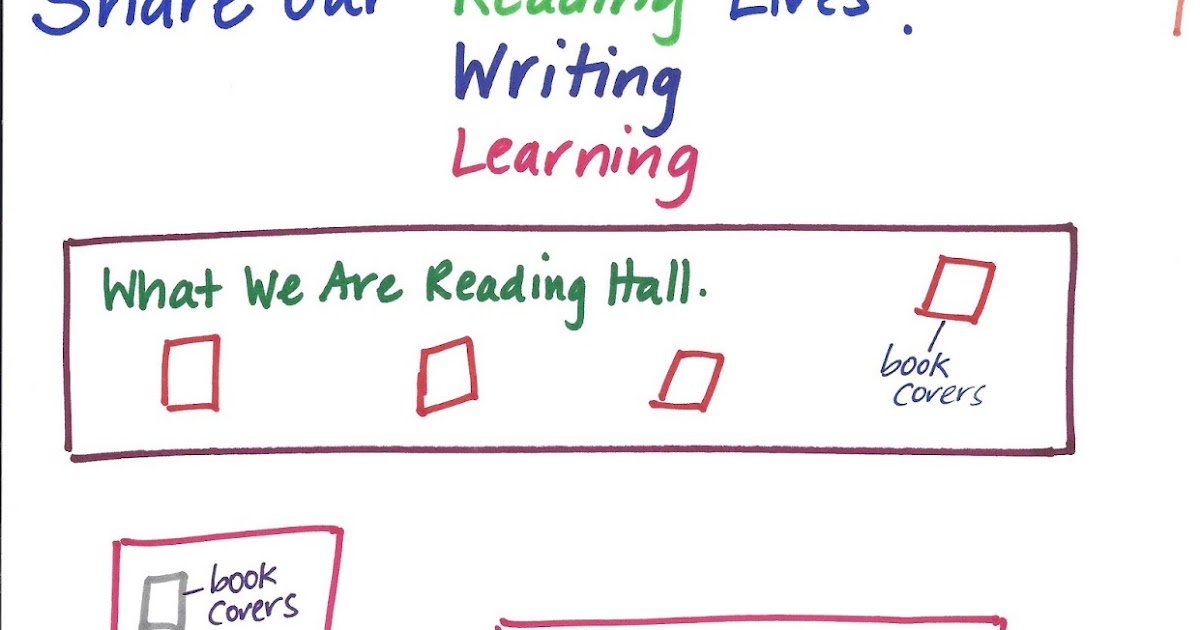 Share Our Reading Lives.
Writing
Learning
What We Are Reading Hall.
book
covers
book
covers